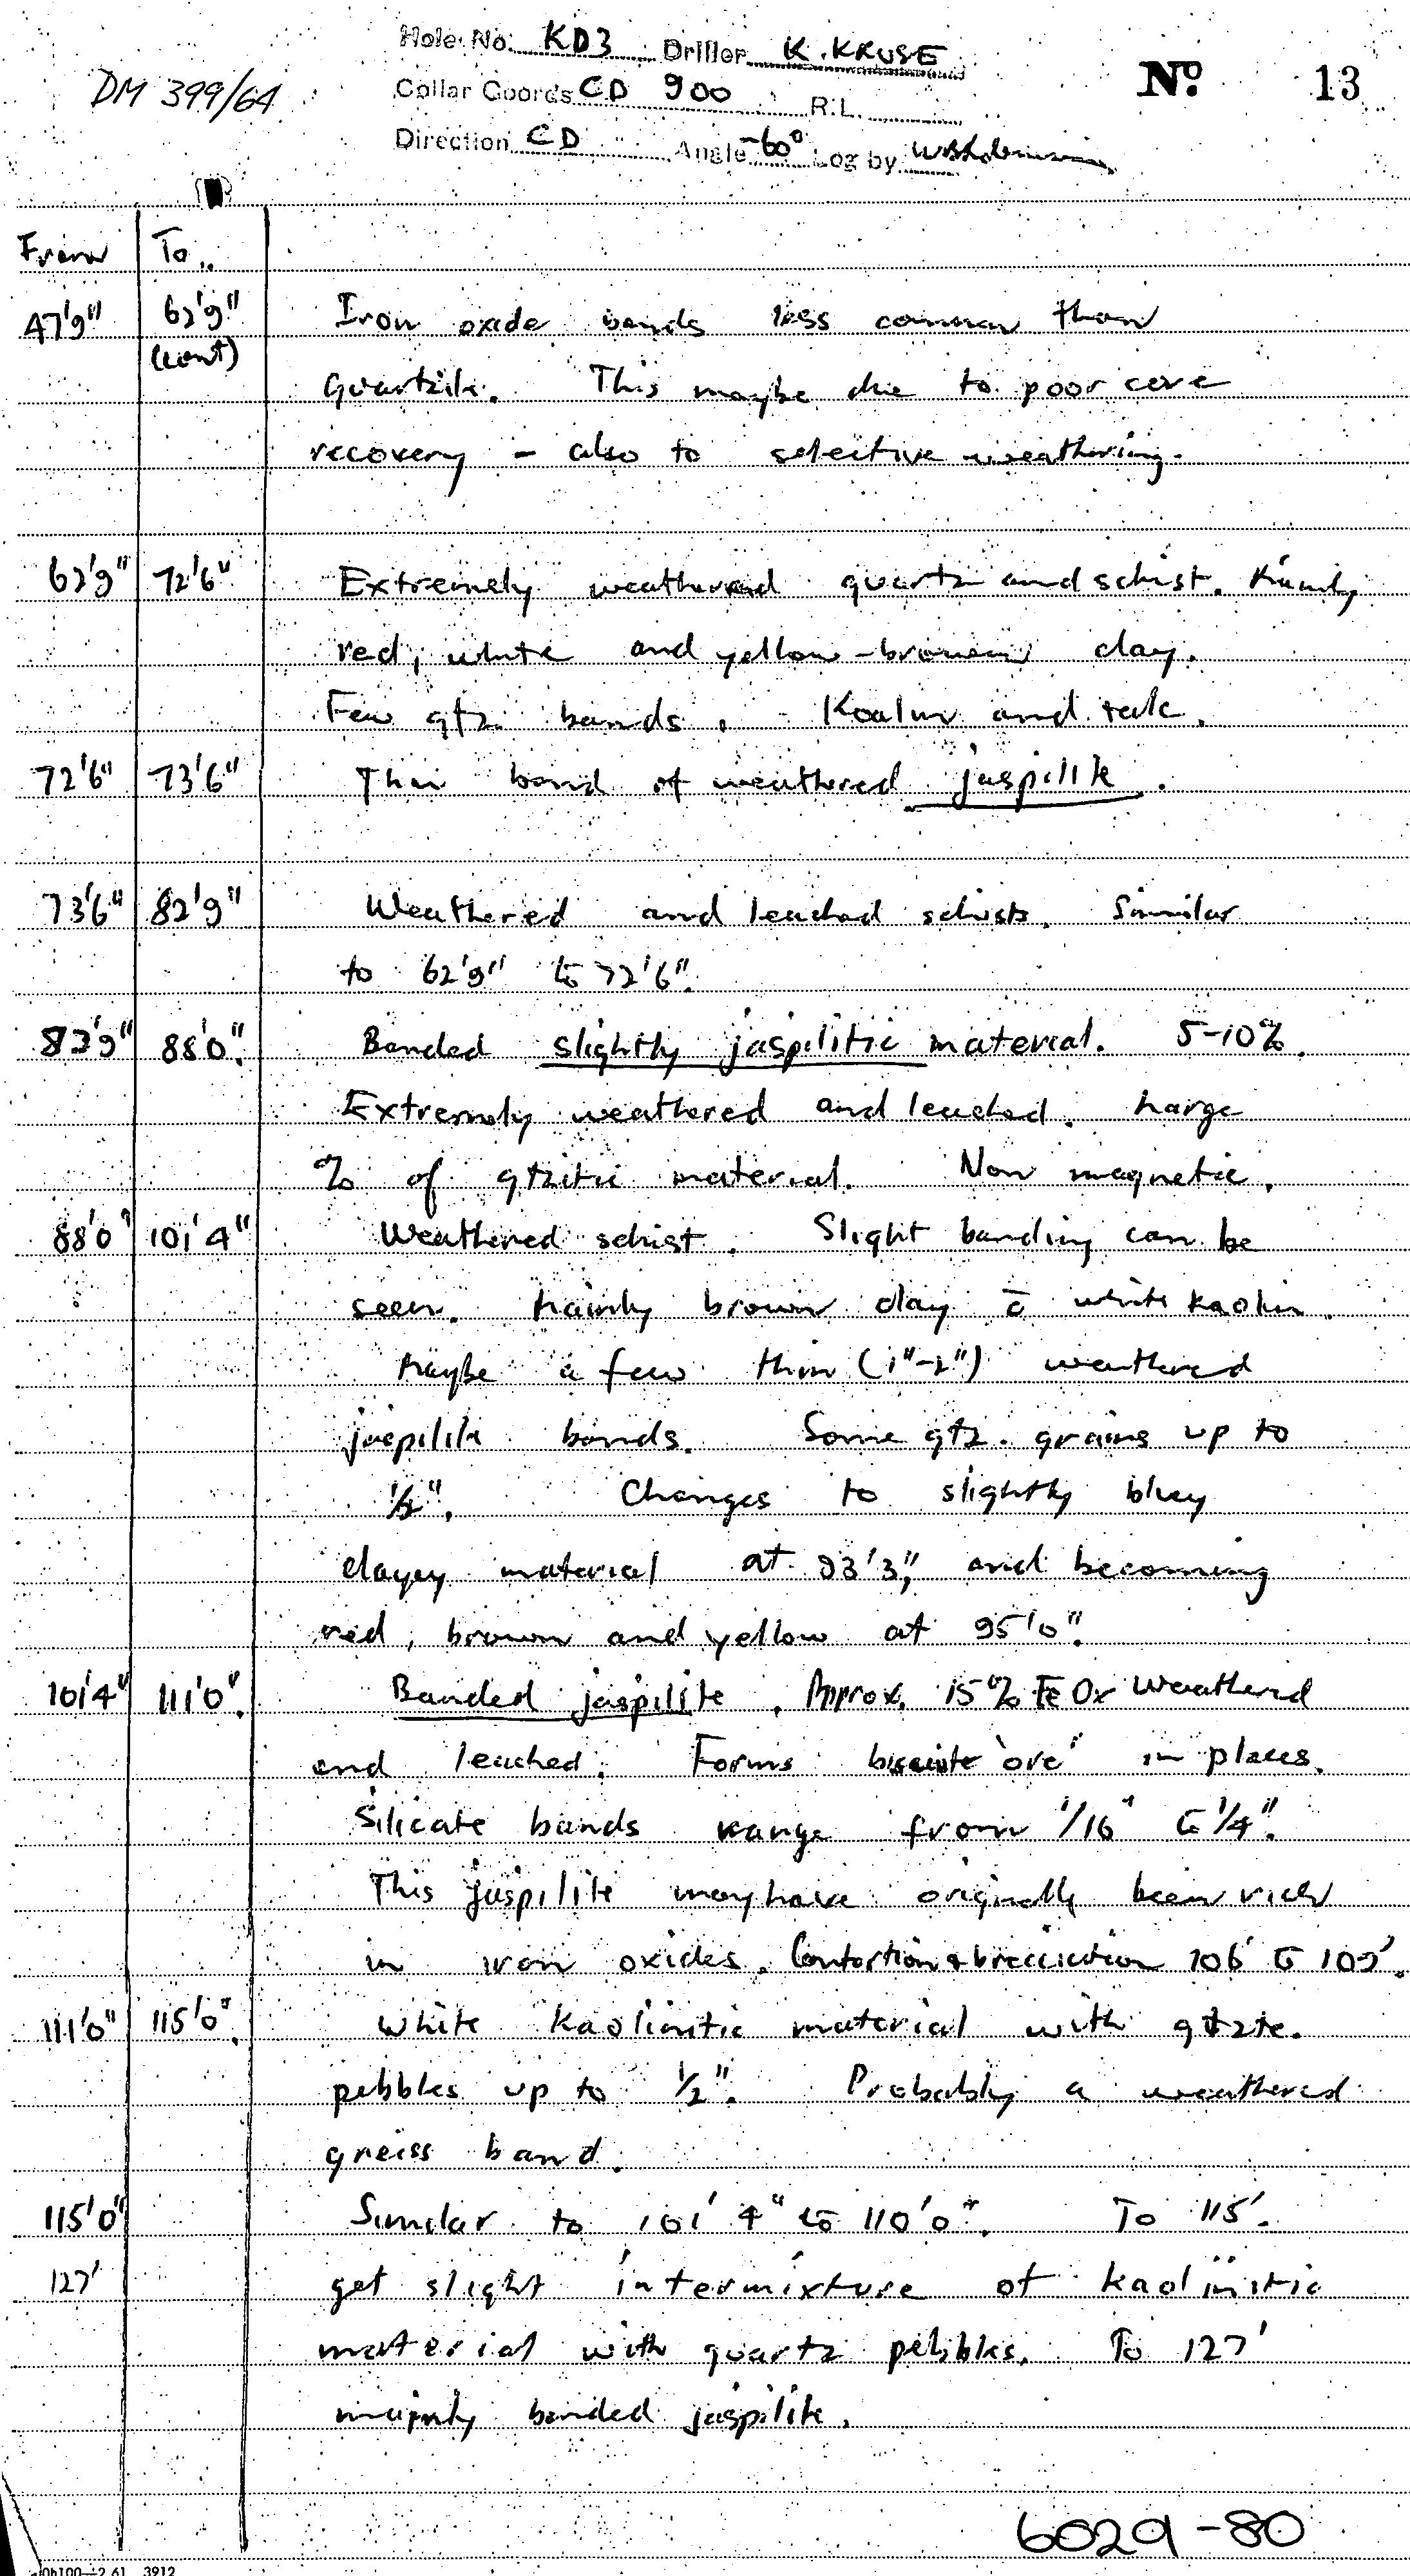 Hole No. KD3 Driller K. KRUSE
DM 399/64
Collar Coords CD 900 R.L.
No. 13
Direction CD Angle -60° Log by
From To
47'9" 62'9" Iron oxide bands less common than
(cont)
quartzite. This maybe due to poor core
recovery - also to selective weathering.
62'9" 72'6" Extremely weathered quartz and schist. Mainly
red, white and yellow-brown clay.
Few qtz. bands. Koalin and talc.
72'6" 73'6" Thin band of weathered jaspilite.
73'6" 82'9" Weathered and leached schists. Similar
to 62'9" to 72'6".
82'9" 88'0". Banded slightly jaspilitic material. 5-10%.
Extremely weathered and leached. Large
% of qtzitic material. Non magnetic.
88'0" 101'4" Weathered schist. Slight banding can be
seen. Mainly brown clay c̄ white kaolin.
Maybe a few thin (1"-2") weathered
jaspilite bands. Some qtz. grains up to
1/2". Changes to slightly bluey
clayey material at 93'3", and becoming
red, brown and yellow at 95'0".
101'4" 111'0". Banded jaspilite. Approx. 15% Fe Ox Weathered
and leached. Forms biscuite 'ore' in places.
Silicate bands range from 1/16" to 1/4".
This jaspilite may have originally been rich
in iron oxides. Contortion & brecciation 106' to 109'.
111'0" 115'0". White Kaolinitic material with qtzte.
pebbles up to 1/2". Probably a weathered
greiss band.
115'0" Similar to 101'4" to 110'0". To 115'.
127' get slight intermixture of kaolinitic
material with quartz pebbles. To 127'
mainly banded jaspilite.
6029-80
Oh100—2.61 3912